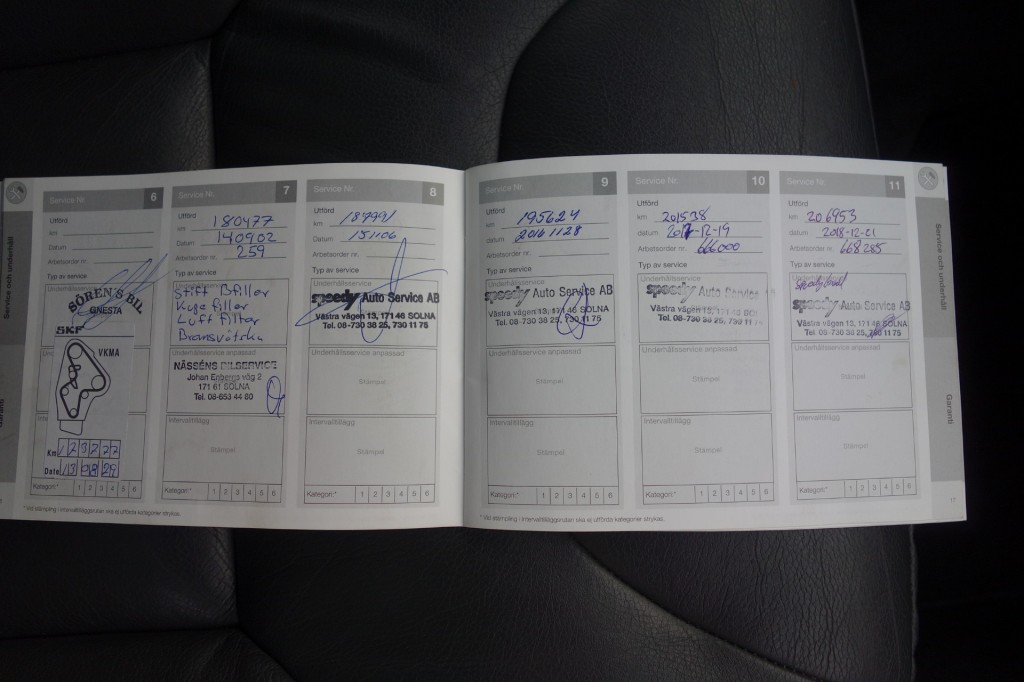 Service och underhåll
Service Nr. 6
Utförd
km
Datum
Arbetsorder nr.
Typ av service
Underhållsservice
SÖREN'S BIL
GNESTA
SKF
VKMA
Km
Date
Kategori:* 1 2 3 4 5 6
* Vid stämpling i intervalltilläggsrutan ska ej utförda kategorier strykas.
Service Nr. 7
Utförd
km 180477
Datum 140902
Arbetsorder nr. 259
Typ av service
Luff filter
NÄSSÉNS BILSERVICE
Johan Enbergs väg 2
171 61 SOLNA
Tel. 08-653 44 80
Intervalltillägg
Stämpel
Kategori:* 1 2 3 4 5 6
Service Nr. 8
Utförd
km 187991
Datum 151106
Arbetsorder nr.
Typ av service
speedy Auto Service AB
Västra vägen 13, 171 46 SOLNA
Tel. 08-730 38 25, 730 11 75
Underhållsservice anpassad
Stämpel
Intervalltillägg
Stämpel
Kategori:* 1 2 3 4 5 6
Service Nr. 9
Utförd
km 195624
datum 20161128
Arbetsorder nr.
Typ av service
speedy Auto Service AB
Västra vägen 13, 171 46 SOLNA
Tel. 08-730 38 25, 730 11 75
Underhållsservice anpassad
Stämpel
Intervalltillägg
Stämpel
Kategori:* 1 2 3 4 5 6
* Vid stämpling i intervalltilläggsrutan ska ej utförda kategorier strykas.
Service Nr. 10
Utförd
km 201538
datum 2017-12-19
Arbetsorder nr. 666000
Typ av service
speedy Auto Service
Västra vägen 13, 171 46
Tel. 08-730 38 25, 730 11 75
Underhållsservice anpassad
Stämpel
Intervalltillägg
Stämpel
Kategori:* 1 2 3 4 5 6
Service Nr. 11
Utförd
km 206953
datum 2018-12-21
Arbetsorder nr. 668285
Typ av service
speedy Auto Service AB
Västra vägen 13, 171 46 SOLNA
Tel. 08-730 38 25, 730 11 75
Underhållsservice anpassad
Stämpel
Intervalltillägg
Stämpel
Kategori:* 1 2 3 4 5 6
Service och underhåll
Garanti
17